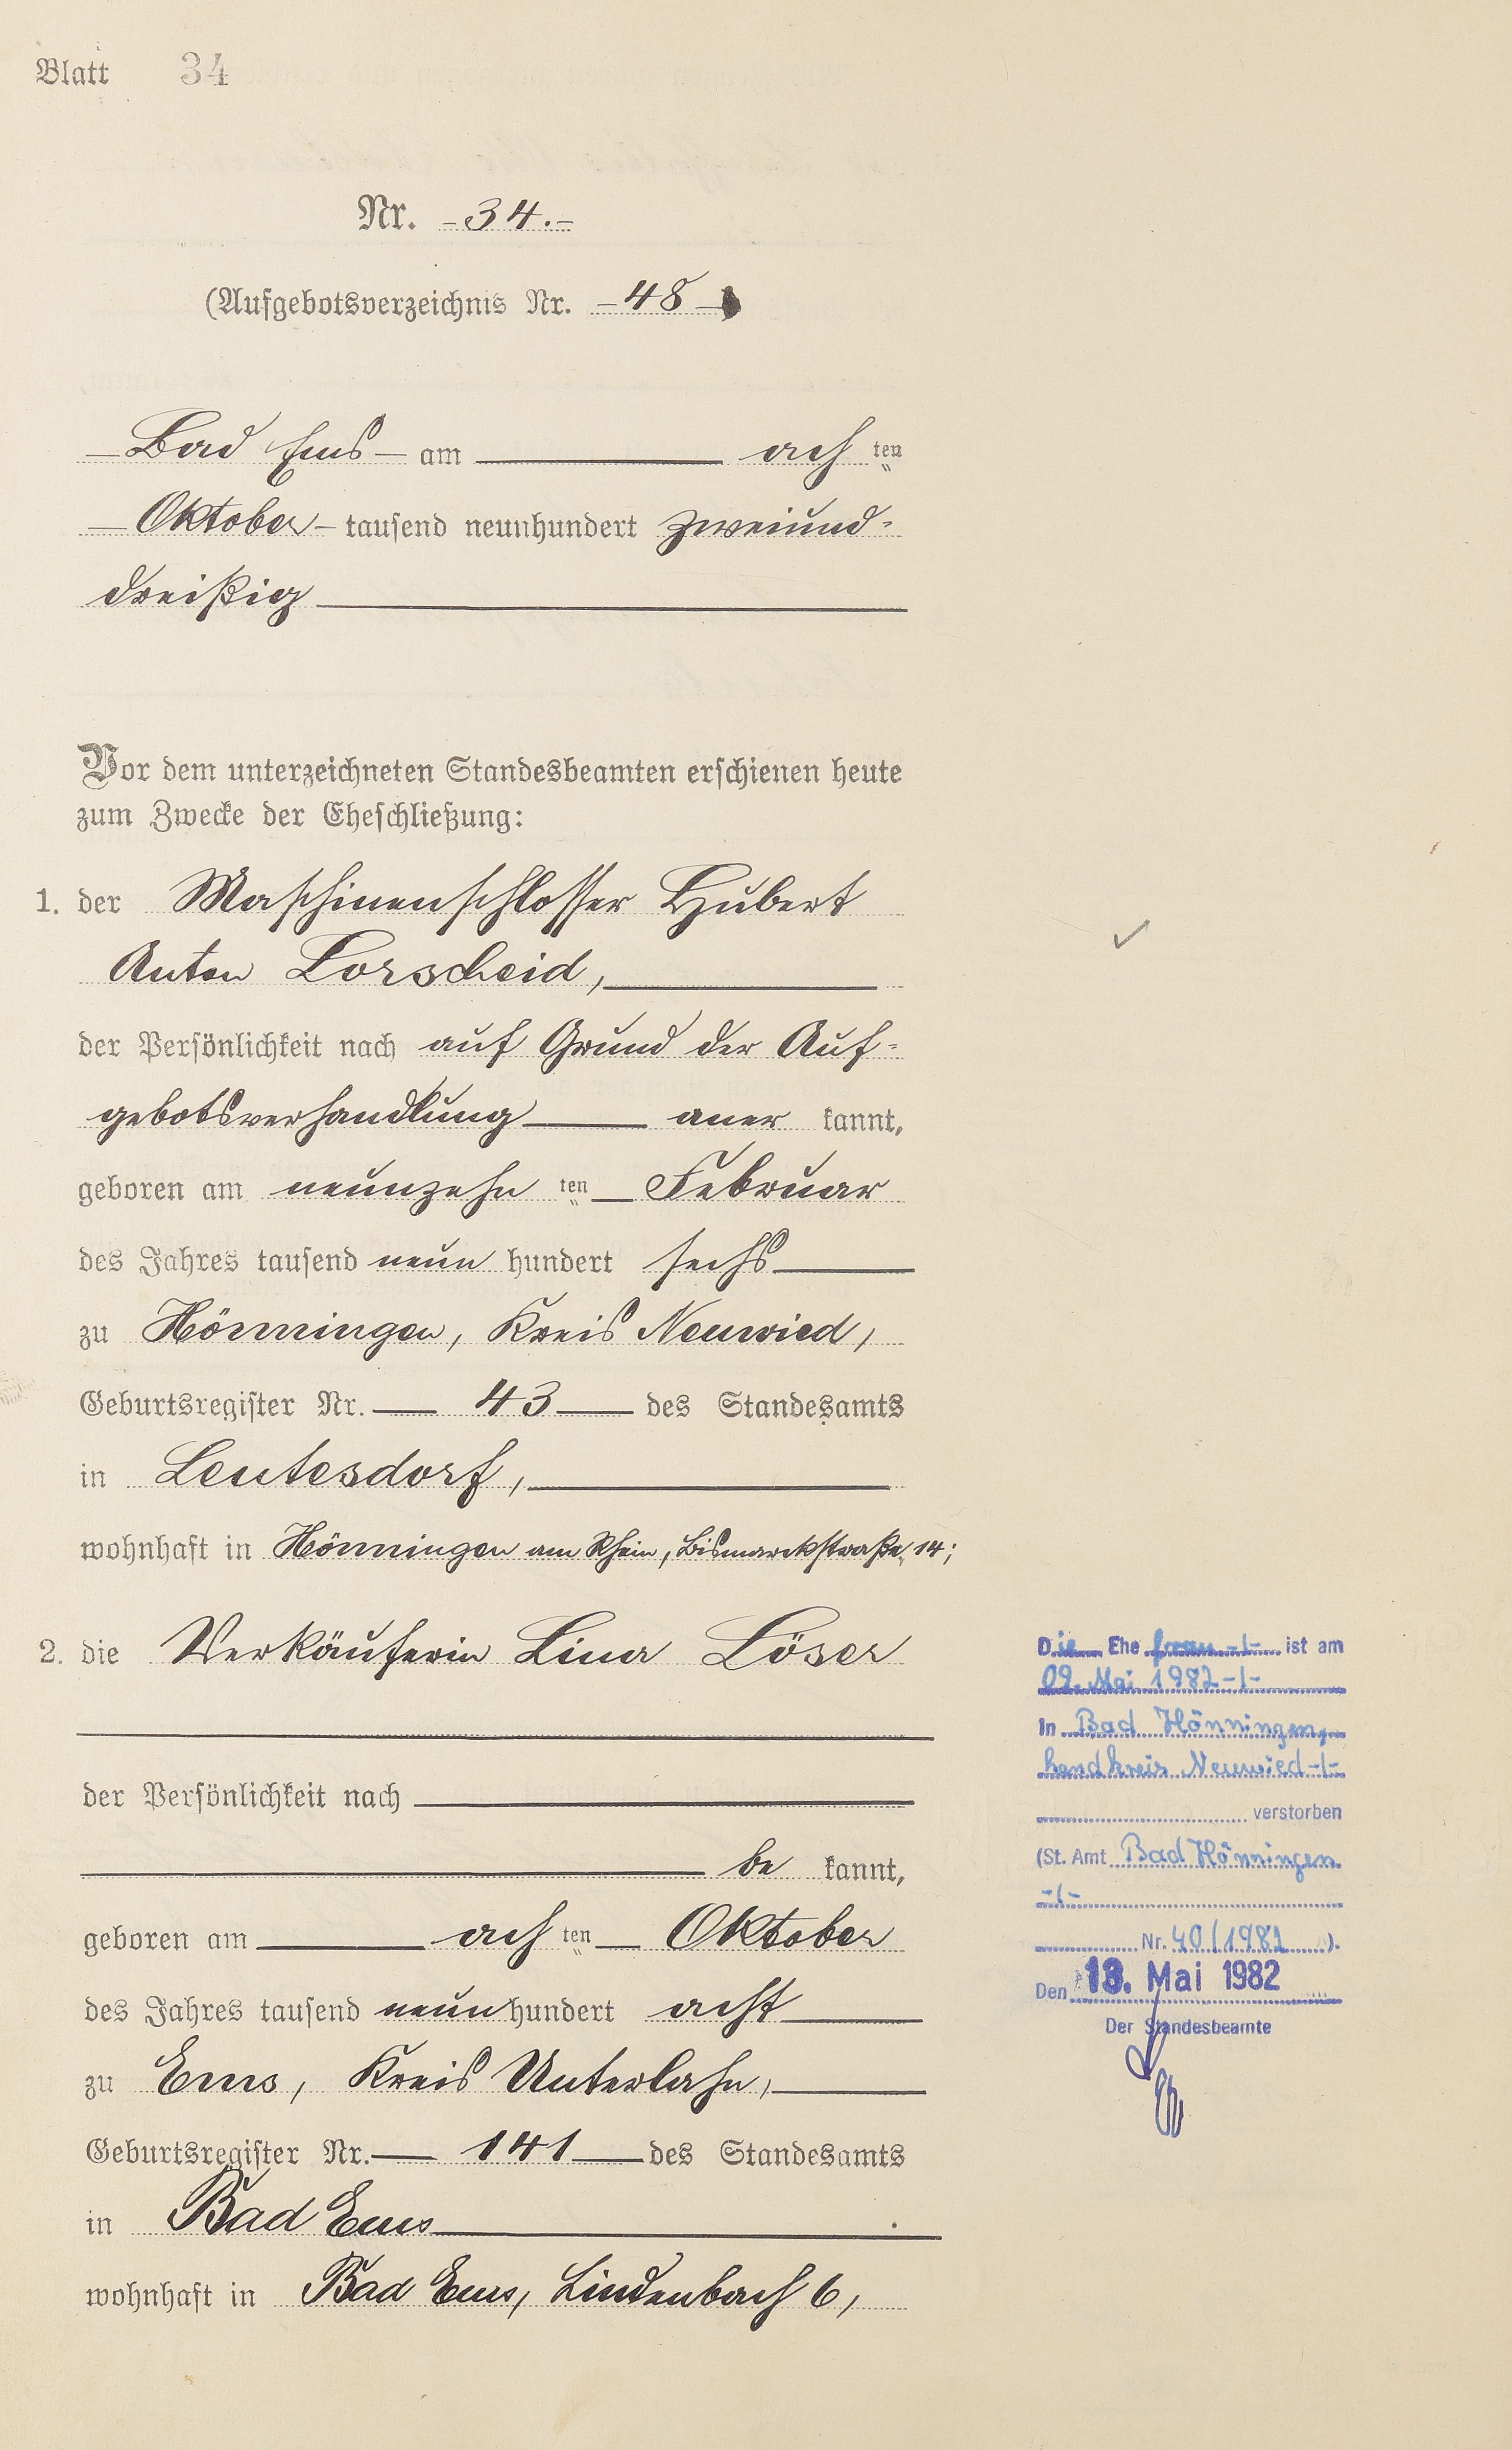 Blatt 34
Nr. -34.-
(Aufgebotsverzeichnis Nr. -48-)
Bad Ems - am ach ten
Oktober - tausend neunhundert zweiund-
dreißig
Vor dem unterzeichneten Standesbeamten erschienen heute
zum Zwecke der Eheschließung:
1. der Maschinenschlosser Hubert
Anton Lorscheid,
der Persönlichkeit nach auf Grund der Auf-
gebotsverhandlung aner kannt,
geboren am neunzehn ten Februar
des Jahres tausend neun hundert sechs
zu Hönningen, Kreis Neuwied,
Geburtsregister Nr. 43 des Standesamts
in Leutesdorf,
wohnhaft in Hönningen am Rhein, Bismarckstraße 14;
2. die Verkäuferin Lina Löser
der Persönlichkeit nach
be kannt,
geboren am ach ten Oktober
des Jahres tausend neun hundert acht
zu Ems, Kreis Unterlahn,
Geburtsregister Nr. 141 des Standesamts
in Bad Ems
wohnhaft in Bad Ems, Lindenbach 6,
Die Ehe frau -/- ist am
09. Mai 1982 -/-
in Bad Hönningen,
Landkreis Neuwied -/-
verstorben
(St. Amt Bad Hönningen
-/-
Nr. 40/1982).
Den 13. Mai 1982
Der Standesbeamte